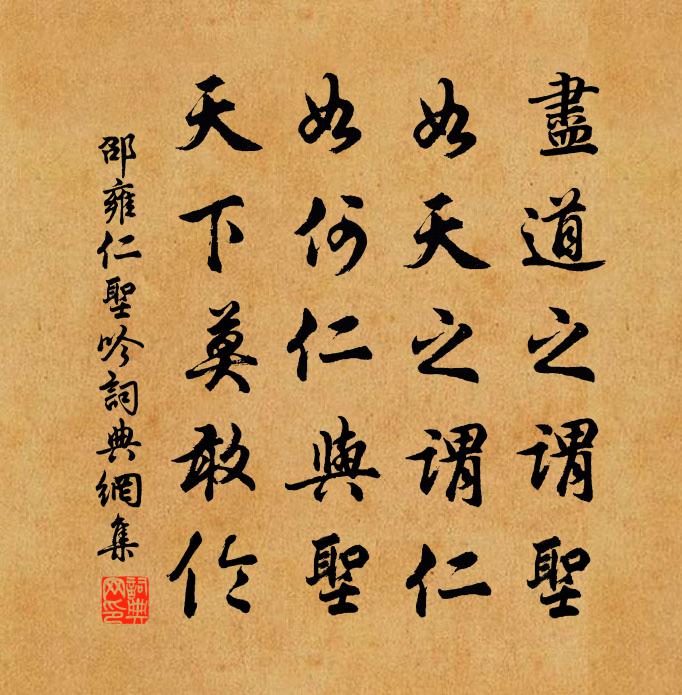 盡道之謂聖
如天之謂仁
如何仁與聖
天下莫敢倫
邵雍仁聖吟詞典網集
詞典網印